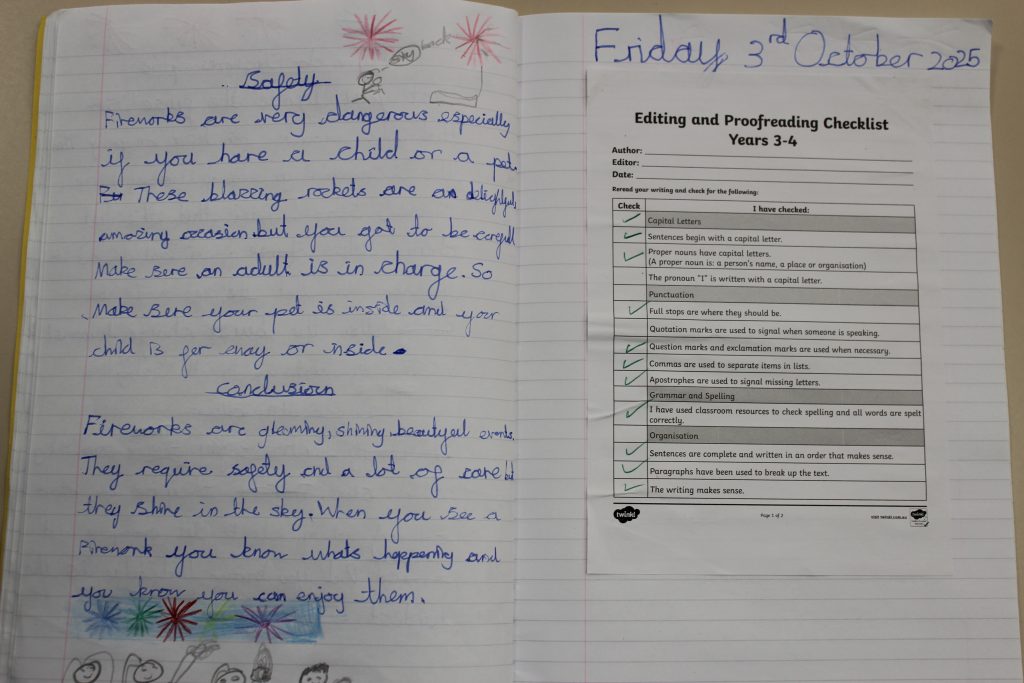 sky back
Safety
Fireworks are very dangerous especially
if you have a child or a pet.
These blazzing rockets are an delightful,
amazing occasion but you got to be carefull
Make sere an adult is in charge. So
Make sere your pet is inside and your
child is fer enay or inside.
Conclusion
Fireworks are gleaming, shining, beautyful events.
They require safety and a lot of care but
they shine in the sky. When you see a
Firework you know whats happening and
you know you can enjoy them.
Friday 3rd October 2025
Editing and Proofreading Checklist
Years 3-4
Author:
Editor:
Date:
Reread your writing and check for the following:
Check I have checked:
Capital Letters
Sentences begin with a capital letter.
Proper nouns have capital letters.
(A proper noun is: a person's name, a place or organisation)
The pronoun "I" is written with a capital letter.
Punctuation
Full stops are where they should be.
Quotation marks are used to signal when someone is speaking.
Question marks and exclamation marks are used when necessary.
Commas are used to separate items in lists.
Apostrophes are used to signal missing letters.
Grammar and Spelling
I have used classroom resources to check spelling and all words are spelt
correctly.
Organisation
Sentences are complete and written in an order that makes sense.
Paragraphs have been used to break up the text.
The writing makes sense.
twinkl Page 1 of 2 visit twinkl.com.au twinkl